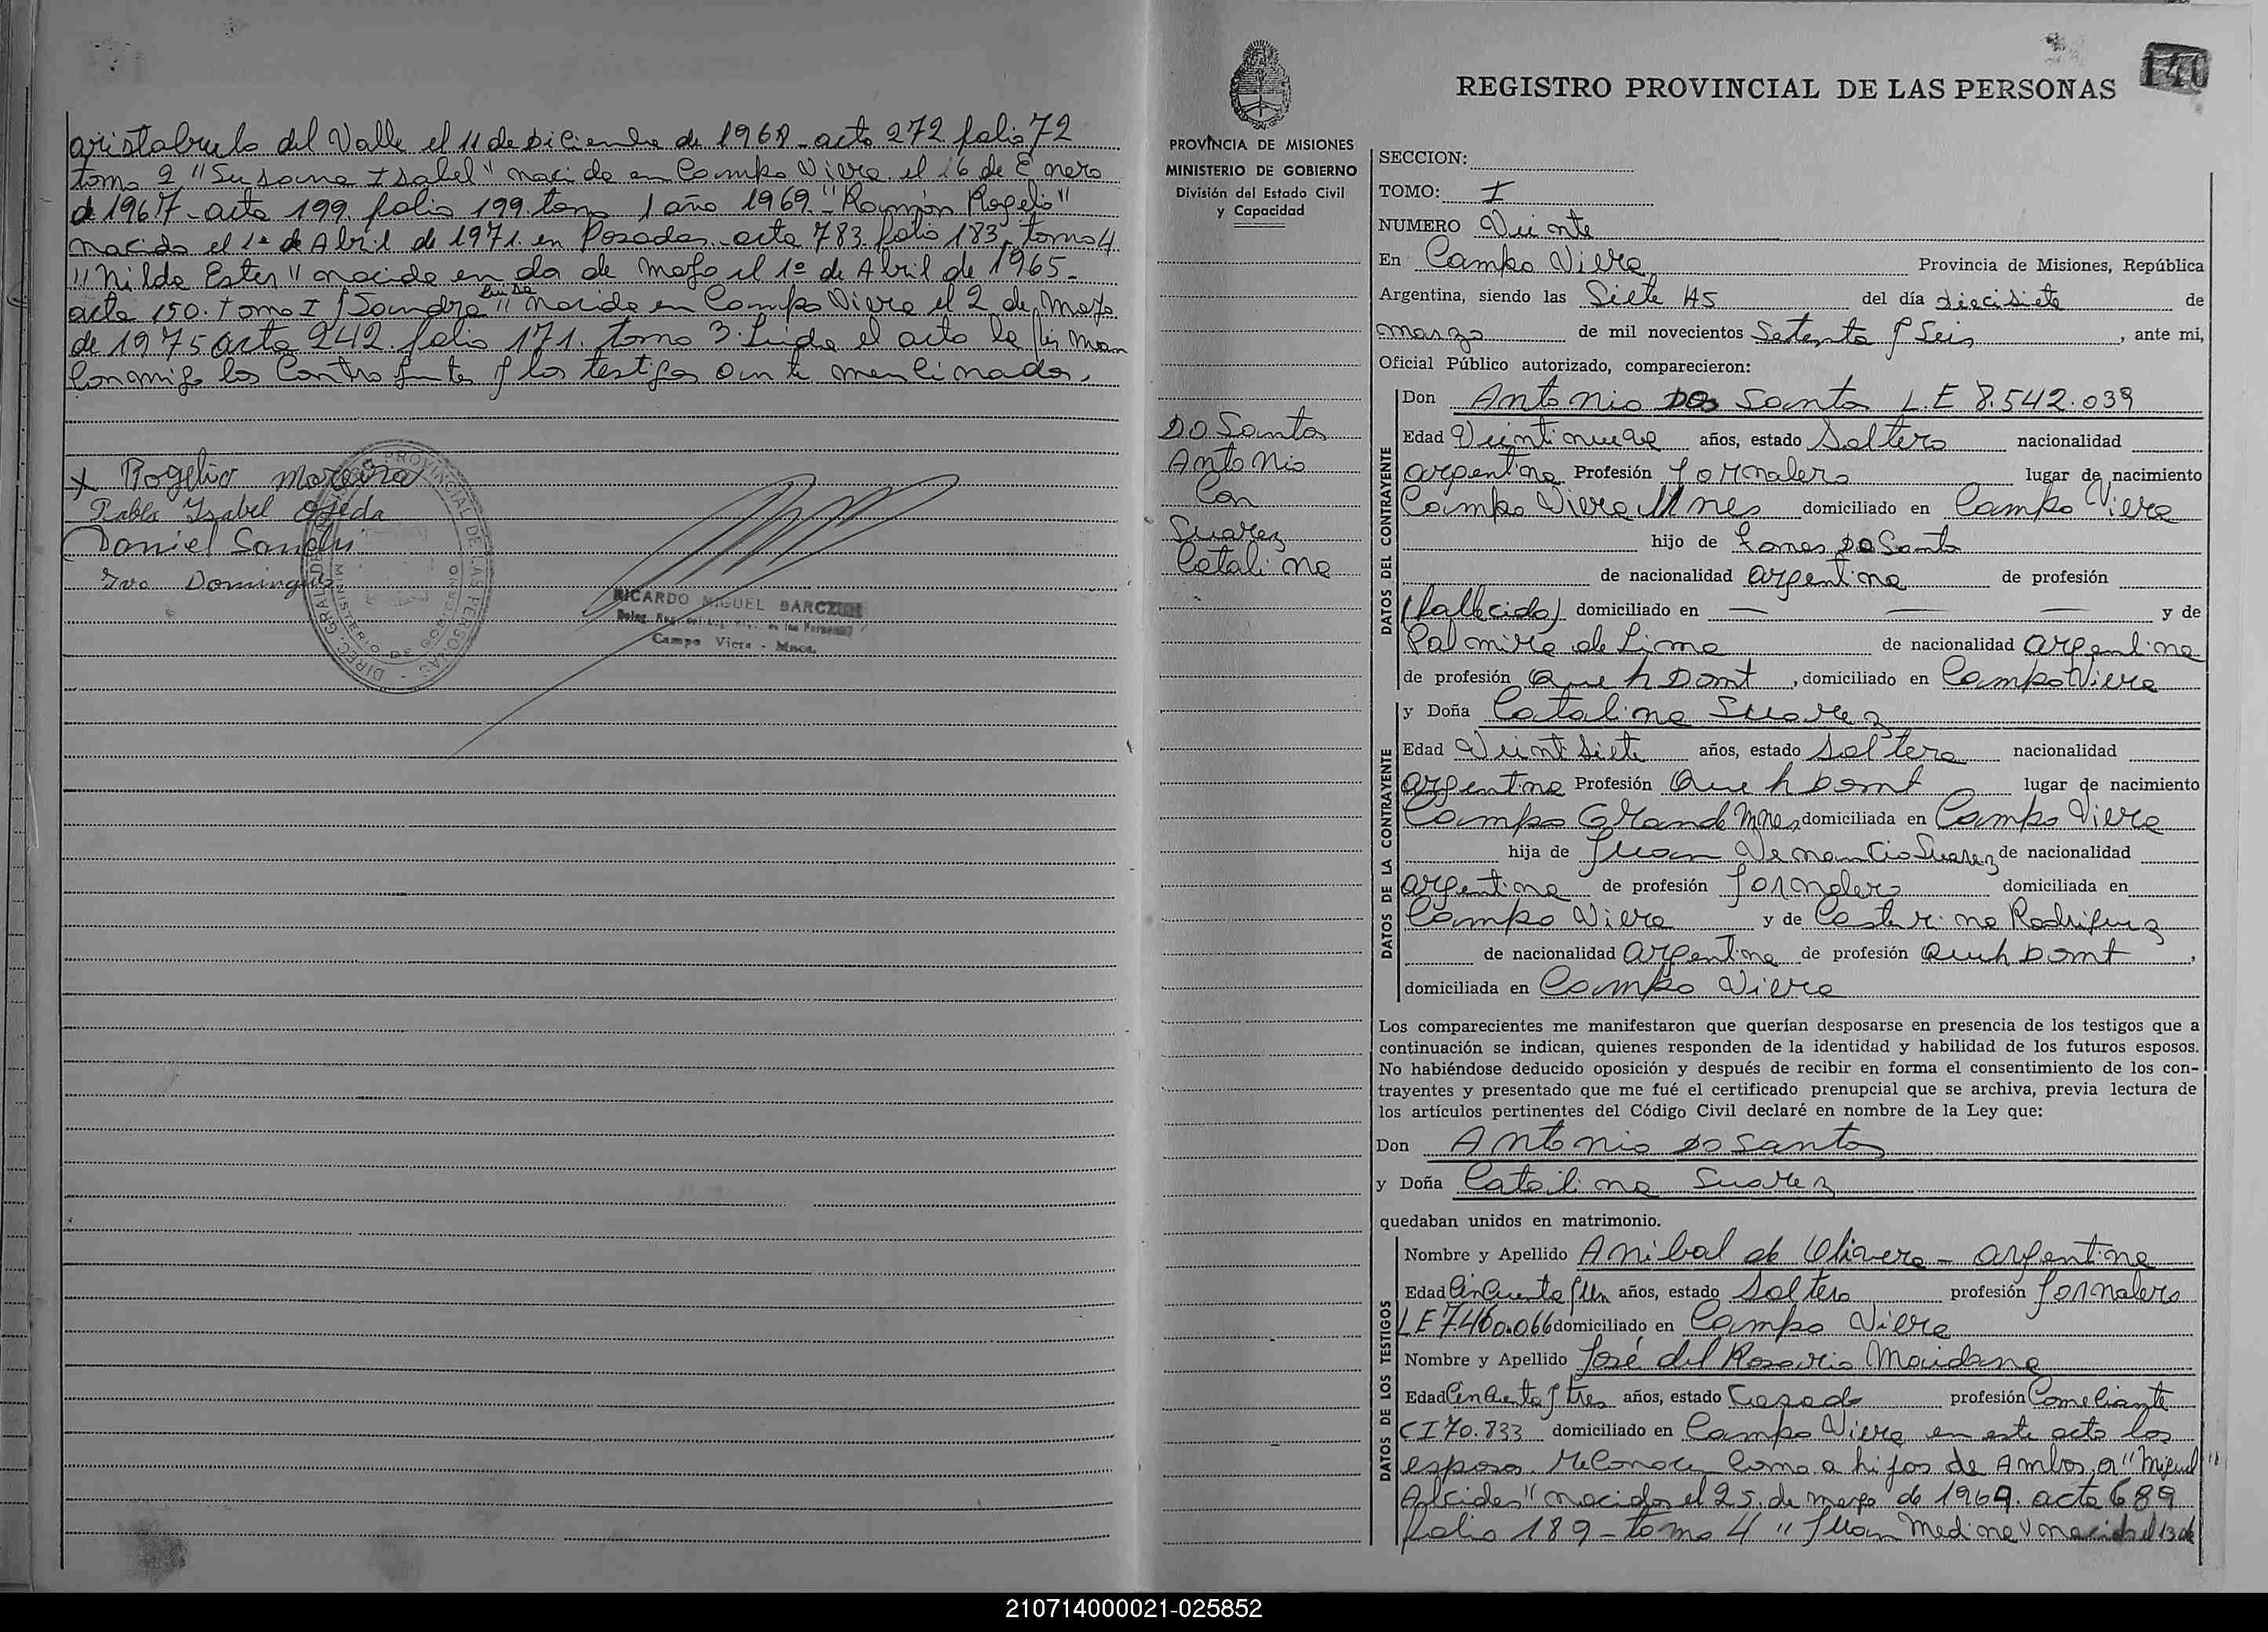 aristabulo del Valle el 11 de Diciembre de 1968 - acta 272 folio 72
tomo 2 "Susana Isabel" nacida en Campo Viera el 16 de Enero
de 1967 - acta 199 folio 199 tomo 1 año 1969 - "Ramón Rogelio"
nacido el 1º de Abril de 1971 en Posadas - acta 783 folio 183 tomo 4
"Nilda Ester" nacida en de Mayo el 1º de Abril de 1965 -
acta 150. tomo I y Sandra nacida en Campo Viera el 2 de Mayo
de 1975 acta 242 folio 171. tomo 3. Leida el acta la firman
conmigo los Contrayentes y los testigos ante mencionados,
x Rogelio Moreira
Isabel Ojeda
Daniel
Domingu
DIREC. GRAL. REGISTRO PROVINCIAL DE LAS PERSONAS
MINISTERIO DE GOBIERNO
RICARDO MIGUEL
Campo Viera - Mnes.
140
REGISTRO PROVINCIAL DE LAS PERSONAS
PROVINCIA DE MISIONES
MINISTERIO DE GOBIERNO
División del Estado Civil
y Capacidad
DO Santos
Antonio
Con
Suarez
Catalina
SECCION:
TOMO: I
NUMERO Veinte
En Campo Viera Provincia de Misiones, República
Argentina, siendo las Siete 45 del día diecisiete de
marzo de mil novecientos Setenta y Seis, ante mi,
Oficial Público autorizado, comparecieron:
DATOS DEL CONTRAYENTE
Don Antonio DOS Santos L.E 8.542.039
Edad Veintinueve años, estado Soltero nacionalidad
argentina Profesión Jornalero lugar de nacimiento
Campo Viera Mnes domiciliado en Campo Viera
hijo de DO Santos
de nacionalidad argentina de profesión
(fallecido) domiciliado en — — — y de
Palmira de Lima de nacionalidad argentina
de profesión Que h Domt, domiciliado en Campo Viera
DATOS DE LA CONTRAYENTE
y Doña Catalina Suarez
Edad Veintisiete años, estado Soltera nacionalidad
argentina Profesión Que h Domt lugar de nacimiento
Campo Grande Mnes domiciliada en Campo Viera
hija de Juan Venancio Suarez de nacionalidad
argentina de profesión Jornalero domiciliada en
Campo Viera y de Rodriguez
de nacionalidad argentina de profesión Queh Domt,
domiciliada en Campo Viera
Los comparecientes me manifestaron que querían desposarse en presencia de los testigos que a
continuación se indican, quienes responden de la identidad y habilidad de los futuros esposos.
No habiéndose deducido oposición y después de recibir en forma el consentimiento de los con-
trayentes y presentado que me fué el certificado prenupcial que se archiva, previa lectura de
los artículos pertinentes del Código Civil declaré en nombre de la Ley que:
Don Antonio DO Santos
y Doña Catalina Suarez
quedaban unidos en matrimonio.
DATOS DE LOS TESTIGOS
Nombre y Apellido Anibal de Olivera - argentina
Edad Cincuenta y Un años, estado Soltero profesión Jornalero
LE 7.460.066 domiciliado en Campo Viera
Nombre y Apellido José del Rosario Maidana
Edad Cincuenta y tres años, estado Casado profesión Comerciante
CI 70.833 domiciliado en Campo Viera en este acto los
esposos reconocen como a hijos de Ambos a "Miguel
Alcides" nacido el 25 de mayo de 1969. acta 689
folio 189 - tomo 4 "Juan Medina" nacido el 13 de
210714000021-025852